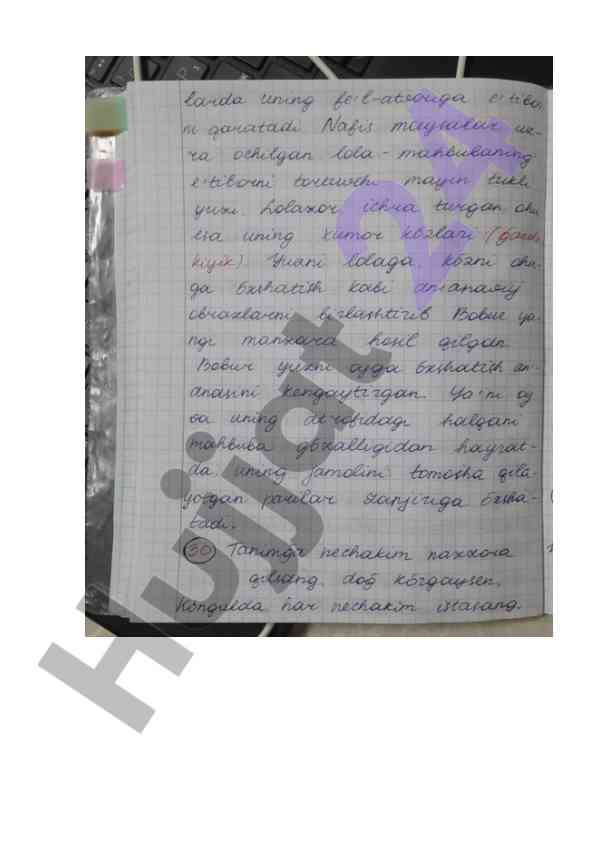 larda uning fe'l-atvoriga e'tibo
ni qaratadi. Nafis maysalar uz-
ra ochilgan lola - mahbubaning
e'tiborni tortuvchi mayin tukli
yuzi. Lolazor ichra turgan
esa uning xumor kõzlari
kiyik) Yuzni lolaga, kõzni oha-
ga õxshatish kabi an'anaviy
obrazlarni birlashtirib Bobur ya-
ngi manzara hosil qilgan.
Bobur yuzni oyga õxshatish an-
anasini kengaytirgan. Ya'ni oy
va uning atrofidagi halqani
mahbuba gõzalligidan hayrat-
da, uning jamolini tomosha qila-
yotgan parilar zanjiriga õxsha-
tadi.
30 Tanimga nechakim
qilsang, doğ kõrgaysen,
Kõngulda har nechakim istasang,
Hujjat 24